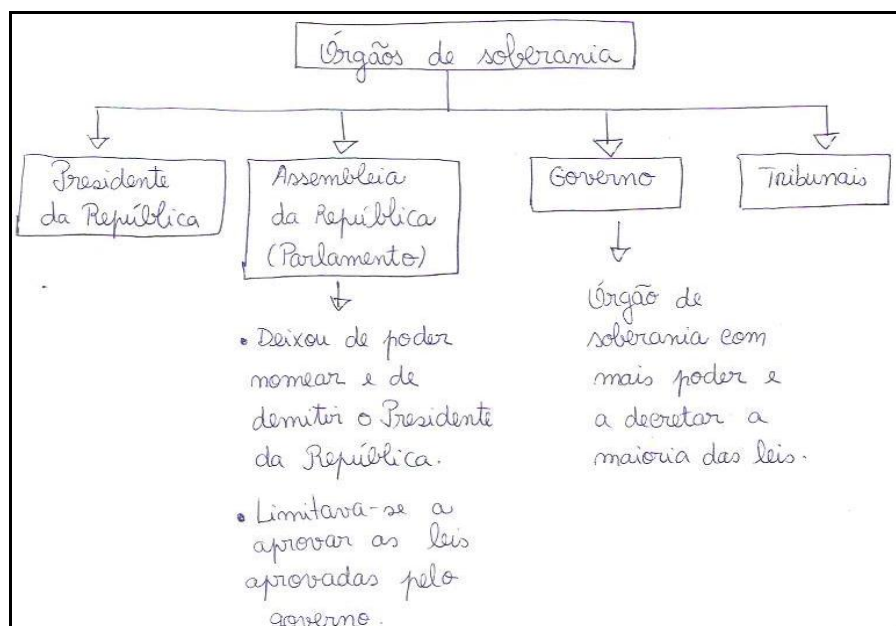 Órgãos de soberania
Presidente
da República
Assembleia
da República
(Parlamento)
Governo
Tribunais
• Deixou de poder
nomear e de
demitir o Presidente
da República.
• Limitava-se a
aprovar as leis
aprovadas pelo
governo.
Órgão de
soberania com
mais poder e
a decretar a
maioria das leis.